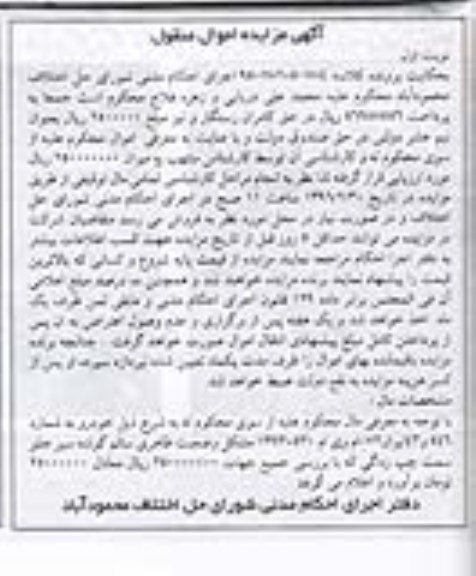 آگهی مزایده اموال منقول
نوبت اول
بحکایت پرونده کلاسه اجرای احکام مدنی شورای حل اختلاف
محمودآباد محکوم علیه محمد علی دریایی و زهره فلاح محکوم است جمعا به
پرداخت ریال در حق کامران رستگار و نیز مبلغ ریال بعنوان
نیم عشر دولتی در حق صندوق دولت و با عنایت به معرفی اموال محکوم علیه از
سوی محکوم له و کارشناسی آن توسط کارشناس منتخب به میزان ریال
مورد ارزیابی قرار گرفته لذا نظر به انجام مراحل کارشناسی تمامی مال توقیفی از طریق
مزایده در تاریخ ساعت 11 صبح در اجرای احکام مدنی شورای حل
اختلاف و در صورت نیاز در محل مورد نظر به فروش می رسد متقاضیان شرکت
در مزایده می توانند حداقل 5 روز قبل از تاریخ مزایده جهت کسب اطلاعات بیشتر
به دفتر اجرا احکام مراجعه نمایند مزایده از قیمت پایه شروع و کسانی که بالاترین
قیمت را پیشنهاد نمایند برنده مزایده خواهند شد و همچنین ده درصد مبلغ اعلامی
آن فی المجلس برابر ماده 129 قانون اجرای احکام مدنی و مابقی ثمن ظرف یک
ماه اخذ خواهد شد و یک هفته پس از برگزاری و عدم وصول اعتراض به آن پس
از پرداختن کامل مبلغ پیشنهادی انتقال اموال صورت خواهد گرفت . چنانچه برنده
مزایده باقیمانده بهای اموال را ظرف مدت یکماه تعیین شده نپردازد سپرده او پس از
کسر هزینه مزایده به نفع دولت ضبط خواهد شد
مشخصات مال :
با توجه به معرفی مال محکوم علیه از سوی محکوم له به شرح ذیل خودرو به شماره
وضعیت ظاهری سالم گوشه سپر جلو
سمت چپ زدگی که با بررسی جمیع جهات ریال معادل
تومان برآورد و اعلام می گردد
دفتر اجرای احکام مدنی شورای حل اختلاف محمودآباد